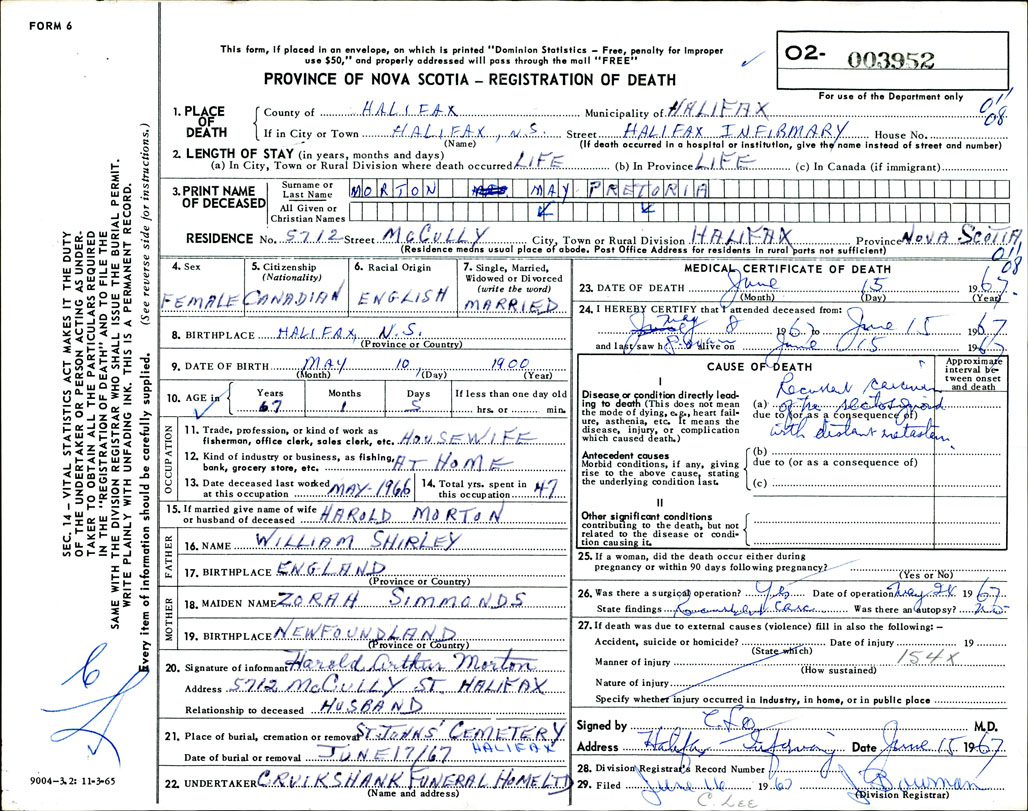 FORM 6
This form, if placed in an envelope, on which is printed "Dominion Statistics – Free, penalty for improper
use $50," and properly addressed will pass through the mail "FREE"
O2- 003952
For use of the Department only
PROVINCE OF NOVA SCOTIA – REGISTRATION OF DEATH
SEC. 14 – VITAL STATISTICS ACT MAKES IT THE DUTY
OF THE UNDERTAKER OR PERSON ACTING AS UNDER-
TAKER TO OBTAIN ALL THE PARTICULARS REQUIRED
IN THE "REGISTRATION OF DEATH" AND TO FILE THE
SAME WITH THE DIVISION REGISTRAR WHO SHALL ISSUE THE BURIAL PERMIT.
WRITE PLAINLY WITH UNFADING INK. THIS IS A PERMANENT RECORD.
Every item of information should be carefully supplied. (See reverse side for instructions.)
1. PLACE OF DEATH
County of HALIFAX Municipality of HALIFAX 08
If in City or Town HALIFAX, N.S. Street HALIFAX INFIRMARY House No.
(Name) (If death occurred in a hospital or institution, give the name instead of street and number)
2. LENGTH OF STAY (in years, months and days)
(a) In City, Town or Rural Division where death occurred LIFE (b) In Province LIFE (c) In Canada (if immigrant)
3. PRINT NAME OF DECEASED
Surname or Last Name MORTON MAY PRETORIA
All Given or Christian Names
RESIDENCE No. 5712 Street McCULLY City, Town or Rural Division HALIFAX Province NOVA SCOTIA
(Residence means usual place of abode. Post Office Address for residents in rural parts not sufficient)
08
4. Sex FEMALE
5. Citizenship (Nationality) CANADIAN
6. Racial Origin ENGLISH
7. Single, Married, Widowed or Divorced (write the word) MARRIED
8. BIRTHPLACE HALIFAX, N.S.
(Province or Country)
9. DATE OF BIRTH MAY 10, 1900
(Month) (Day) (Year)
10. AGE in Years 67 Months 1 Days 5 If less than one day old hrs. or min.
OCCUPATION
11. Trade, profession, or kind of work as
fisherman, office clerk, sales clerk, etc. HOUSEWIFE
12. Kind of industry or business, as fishing,
bank, grocery store, etc. AT HOME
13. Date deceased last worked
at this occupation MAY-1966
14. Total yrs. spent in
this occupation 47
15. If married give name of wife
or husband of deceased HAROLD MORTON
FATHER
16. NAME WILLIAM SHIRLEY
17. BIRTHPLACE ENGLAND
(Province or Country)
MOTHER
18. MAIDEN NAME ZORAH SIMMONDS
19. BIRTHPLACE NEWFOUNDLAND
(Province or Country)
20. Signature of informant Harold Arthur Morton
Address 5712 McCULLY ST HALIFAX
Relationship to deceased HUSBAND
21. Place of burial, cremation or removal ST. JOHNS' CEMETERY
HALIFAX
Date of burial or removal JUNE 17/67
22. UNDERTAKER CRUIKSHANK FUNERAL HOME LTD
(Name and address)
9004-3.2: 11-3-65
MEDICAL CERTIFICATE OF DEATH
23. DATE OF DEATH June 15 1967
(Month) (Day) (Year)
24. I HEREBY CERTIFY that I attended deceased from:
May 8 1967 to June 15 1967
and last saw h alive on June 15 1967
CAUSE OF DEATH
Approximate interval between onset and death
I
Disease or condition directly leading to death (This does not mean the mode of dying, e.g., heart failure, asthenia, etc. It means the disease, injury, or complication which caused death.)
(a) Recurrent carcinoma
of the rectosigmoid
due to (or as a consequence of)
with distant metastasis
Antecedent causes
Morbid conditions, if any, giving rise to the above cause, stating the underlying condition last.
(b)
due to (or as a consequence of)
(c)
II
Other significant conditions
contributing to the death, but not related to the disease or condition causing it.
25. If a woman, did the death occur either during
pregnancy or within 90 days following pregnancy?
(Yes or No)
26. Was there a surgical operation? Yes Date of operation May 24 1967
State findings Was there an autopsy? No
27. If death was due to external causes (violence) fill in also the following: –
Accident, suicide or homicide? Date of injury 19
(State which)
Manner of injury 154X
(How sustained)
Nature of injury
Specify whether injury occurred in industry, in home, or in public place
Signed by M.D.
Address Halifax Infirmary Date June 15 1967
28. Division Registrar's Record Number
29. Filed June 16 1967 J. Bowman
(Division Registrar)
C. LEE